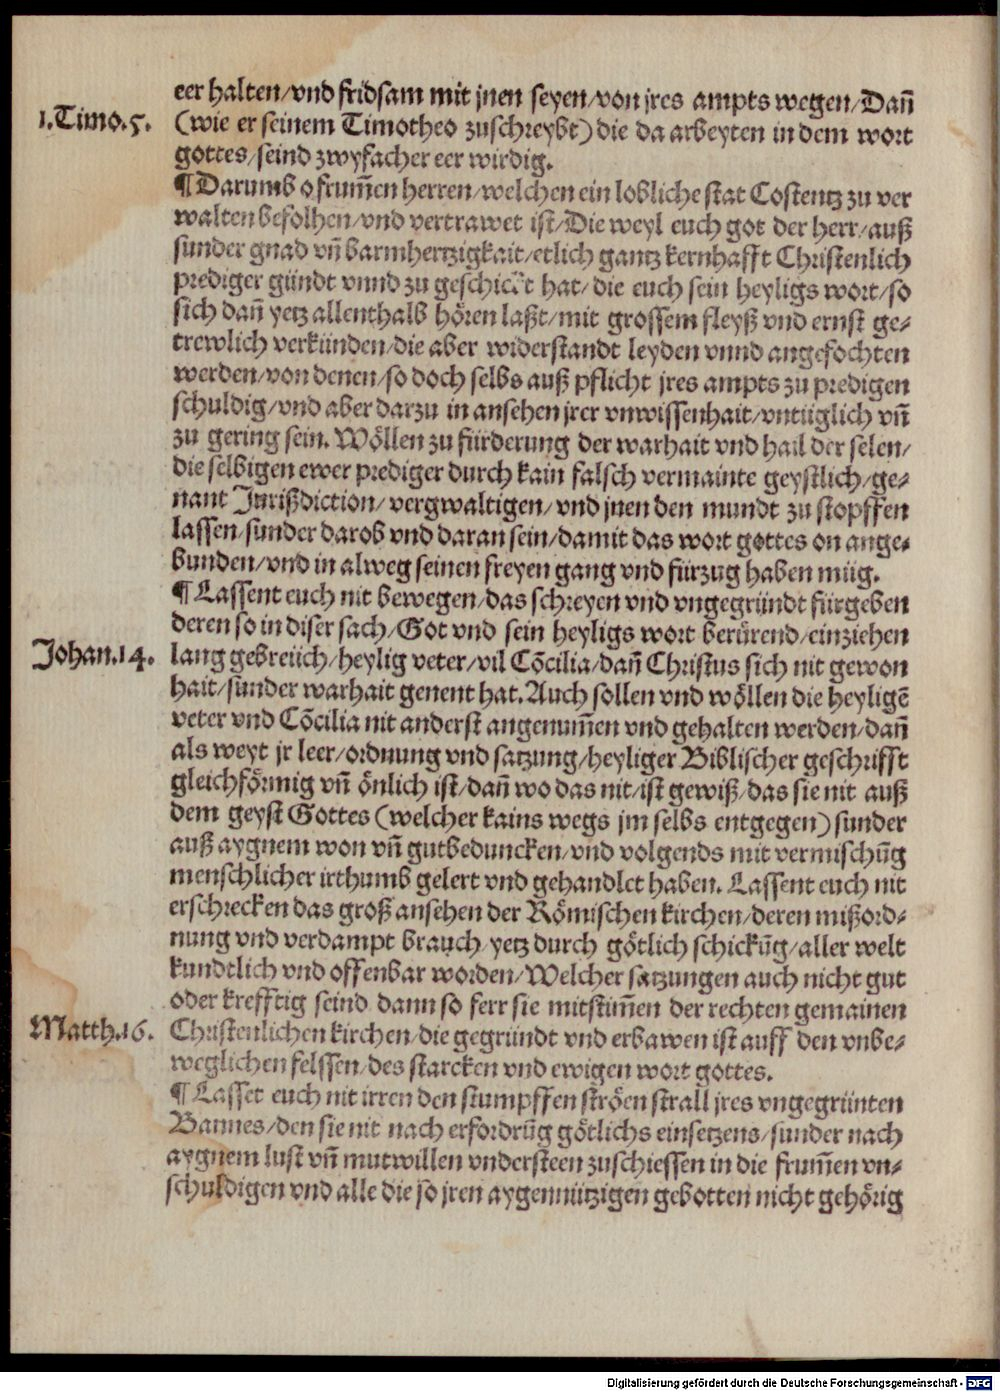 eer halten/vnd fridsam mit jnen seyen/von jres ampts wegen/Dañ
1.Timo.5.
(wie er seinem Timotheo zuschreybt) die da arbeyten in dem wort
gottes/seind zwyfacher eer wirdig.
¶ Darumb o frum̃en herren/welchen ein lobliche stat Costentz zu ver
walten befolhen/vnd vertrawet ist/Die weyl euch got der herr/auß
sunder gnad vñ barmhertzigkait/etlich gantz kernhafft Christenlich
prediger gündt vnnd zu geschickt hat/die euch sein heyligs wort/so
sich dañ yetz allenthalb hören laßt/mit grossem fleyß vnd ernst ge-
trewlich verkünden/die aber widerstandt leyden vnnd angefochten
werden/von denen/so doch selbs auß pflicht jres ampts zu predigen
schuldig/vnd aber darzu in ansehen jrer vnwissenhait/vntüglich vñ
zu gering sein. Wöllen zu fürderung der warhait vnd hail der selen/
die selbigen ewer prediger durch kain falsch vermainte geystlich/ge-
nant Jurißdiction/vergwaltigen/vnd jnen den mundt zu stopffen
lassen/sunder darob vnd daran sein/damit das wort gottes on ange-
bunden/vnd in alweg seinen freyen gang vnd fürzug haben müg.
¶ Lassent euch nit bewegen/das schreyen vnd vngegründt fürgeben
deren so in diser sach/Got vnd sein heyligs wort berürend/einziehen
Johan.14.
lang gebreüch/heylig veter/vil Cõcilia/dañ Christus sich nit gewon
hait/sunder warhait genent hat. Auch sollen vnd wöllen die heyligẽ
veter vnd Cõcilia nit anderst angenum̃en vnd gehalten werden/dañ
als weyt jr leer/ordnung vnd satzung/heyliger Biblischer geschrifft
gleichförmig vñ önlich ist/dañ wo das nit/ist gewiß/das sie nit auß
dem geyst Gottes (welcher kains wegs jm selbs entgegen) sunder
auß aygnem won vñ gutbeduncken/vnd volgends mit vermischũg
menschlicher irthumb gelert vnd gehandlet haben. Lassent euch nit
erschrecken das groß ansehen der Römischen kirchen/deren mißord-
nung vnd verdampt brauch/yetz durch götlich schickũg/aller welt
kundtlich vnd offenbar worden/Welcher satzungen auch nicht gut
oder krefftig seind dann so ferr sie mitstim̃en der rechten gemainen
Matth.16.
Christenlichen kirchen/die gegründt vnd erbawen ist auff den vnbe-
weglichen felssen/des starcken vnd ewigen wort gottes.
¶ Lasset euch nit irren den stumpffen ströen strall jres vngegrünten
Bannes/den sie nit nach erfordrũg götlichs einsetzens/sunder nach
aygnem lust vñ mutwillen vndersteen zuschiessen in die frum̃en vn-
schuldigen vnd alle die so jren aygennützigen gebotten nicht gehörig
Digitalisierung gefördert durch die Deutsche Forschungsgemeinschaft - DFG